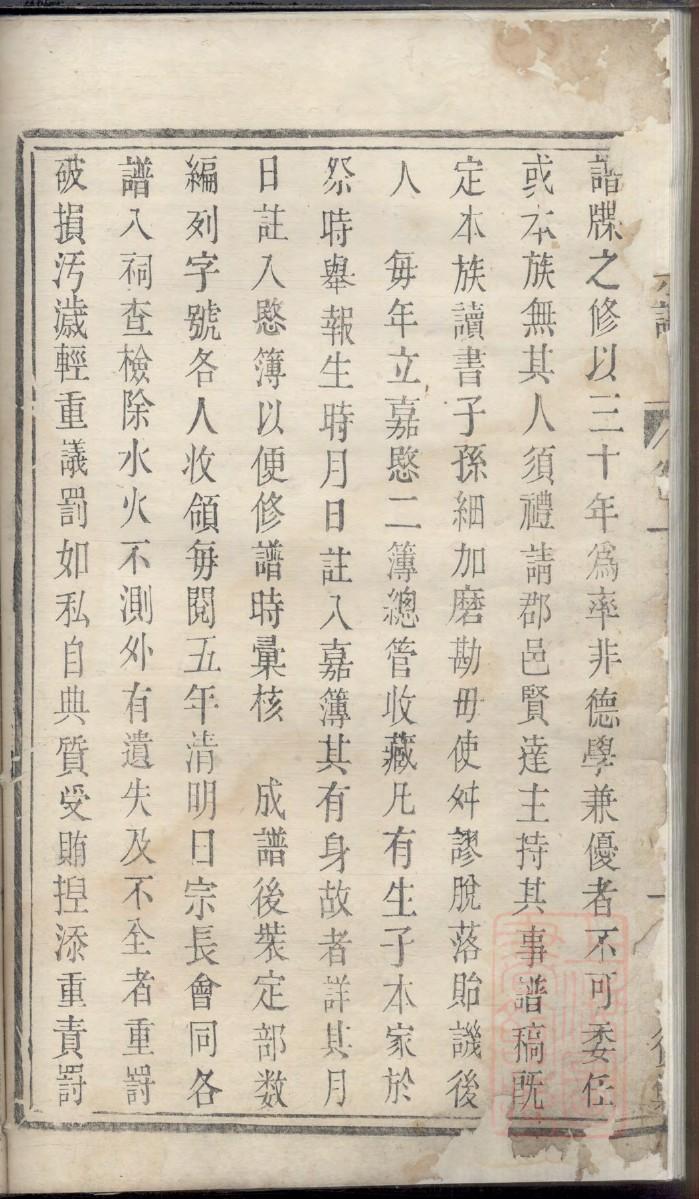 譜牒之修以三十年爲率非德學兼優者不可委任
或本族無其人須禮請郡邑賢達主持其事譜稿既
定本族讀書子孫細加磨勘毋使舛謬脫落貽譏後
人　每年立嘉愍二簿總管收藏凡有生子本家於
祭時舉報生時月日註入嘉簿其有身故者詳其月
日註入愍簿以便修譜時彙核　成譜後裝定部数
編列字號各人收領每閱五年清明日宗長會同各
譜入祠查檢除水火不測外有遺失及不全者重罸
破損汚濊輕重議罰如私自典質受賄捏添重責罸